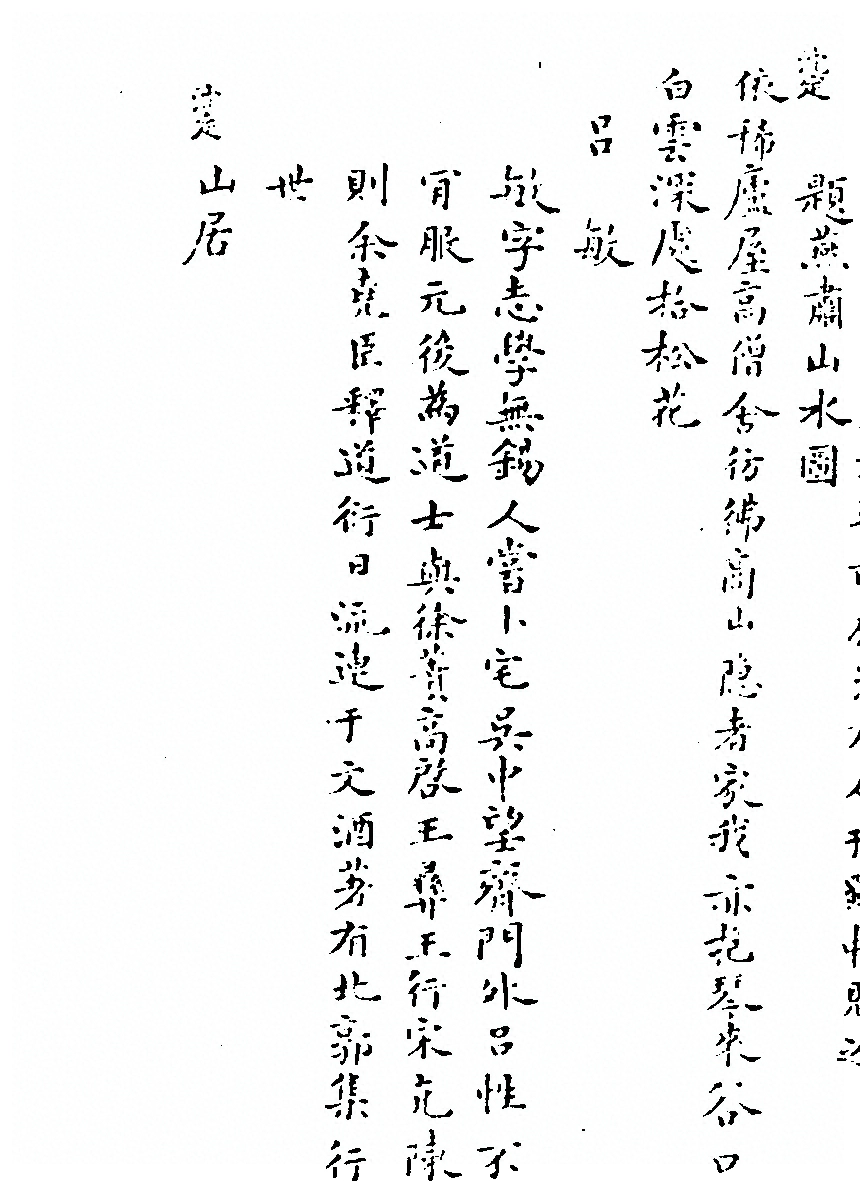 題燕肅山水圖
依稀廬屋高僧舍彷彿商山隐者家我亦抱琴來谷口
白雲深處拾松花
呂敏
敏字志學無錫人嘗卜宅吳中望齊門外呂性不
肎服元後為道士與徐賁高啓王彞王行宋克陳
則余堯臣釋道衍日流連于文酒著有北郭集行
世
山居